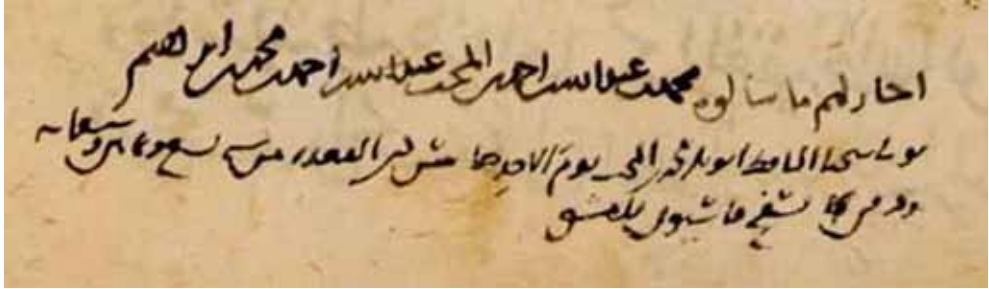 اجاز لهم ما سالوه محمد بن عبد الله بن احمد بن المحب عبد الله بن احمد بن محمد بن ابرهيم
توفي شيخنا الحافظ ابو بكر بن المحب يوم الاحد القعدة من سنة تسع وثمانين وسبعمايه
ودفن بسفح قاسيون بدمشق